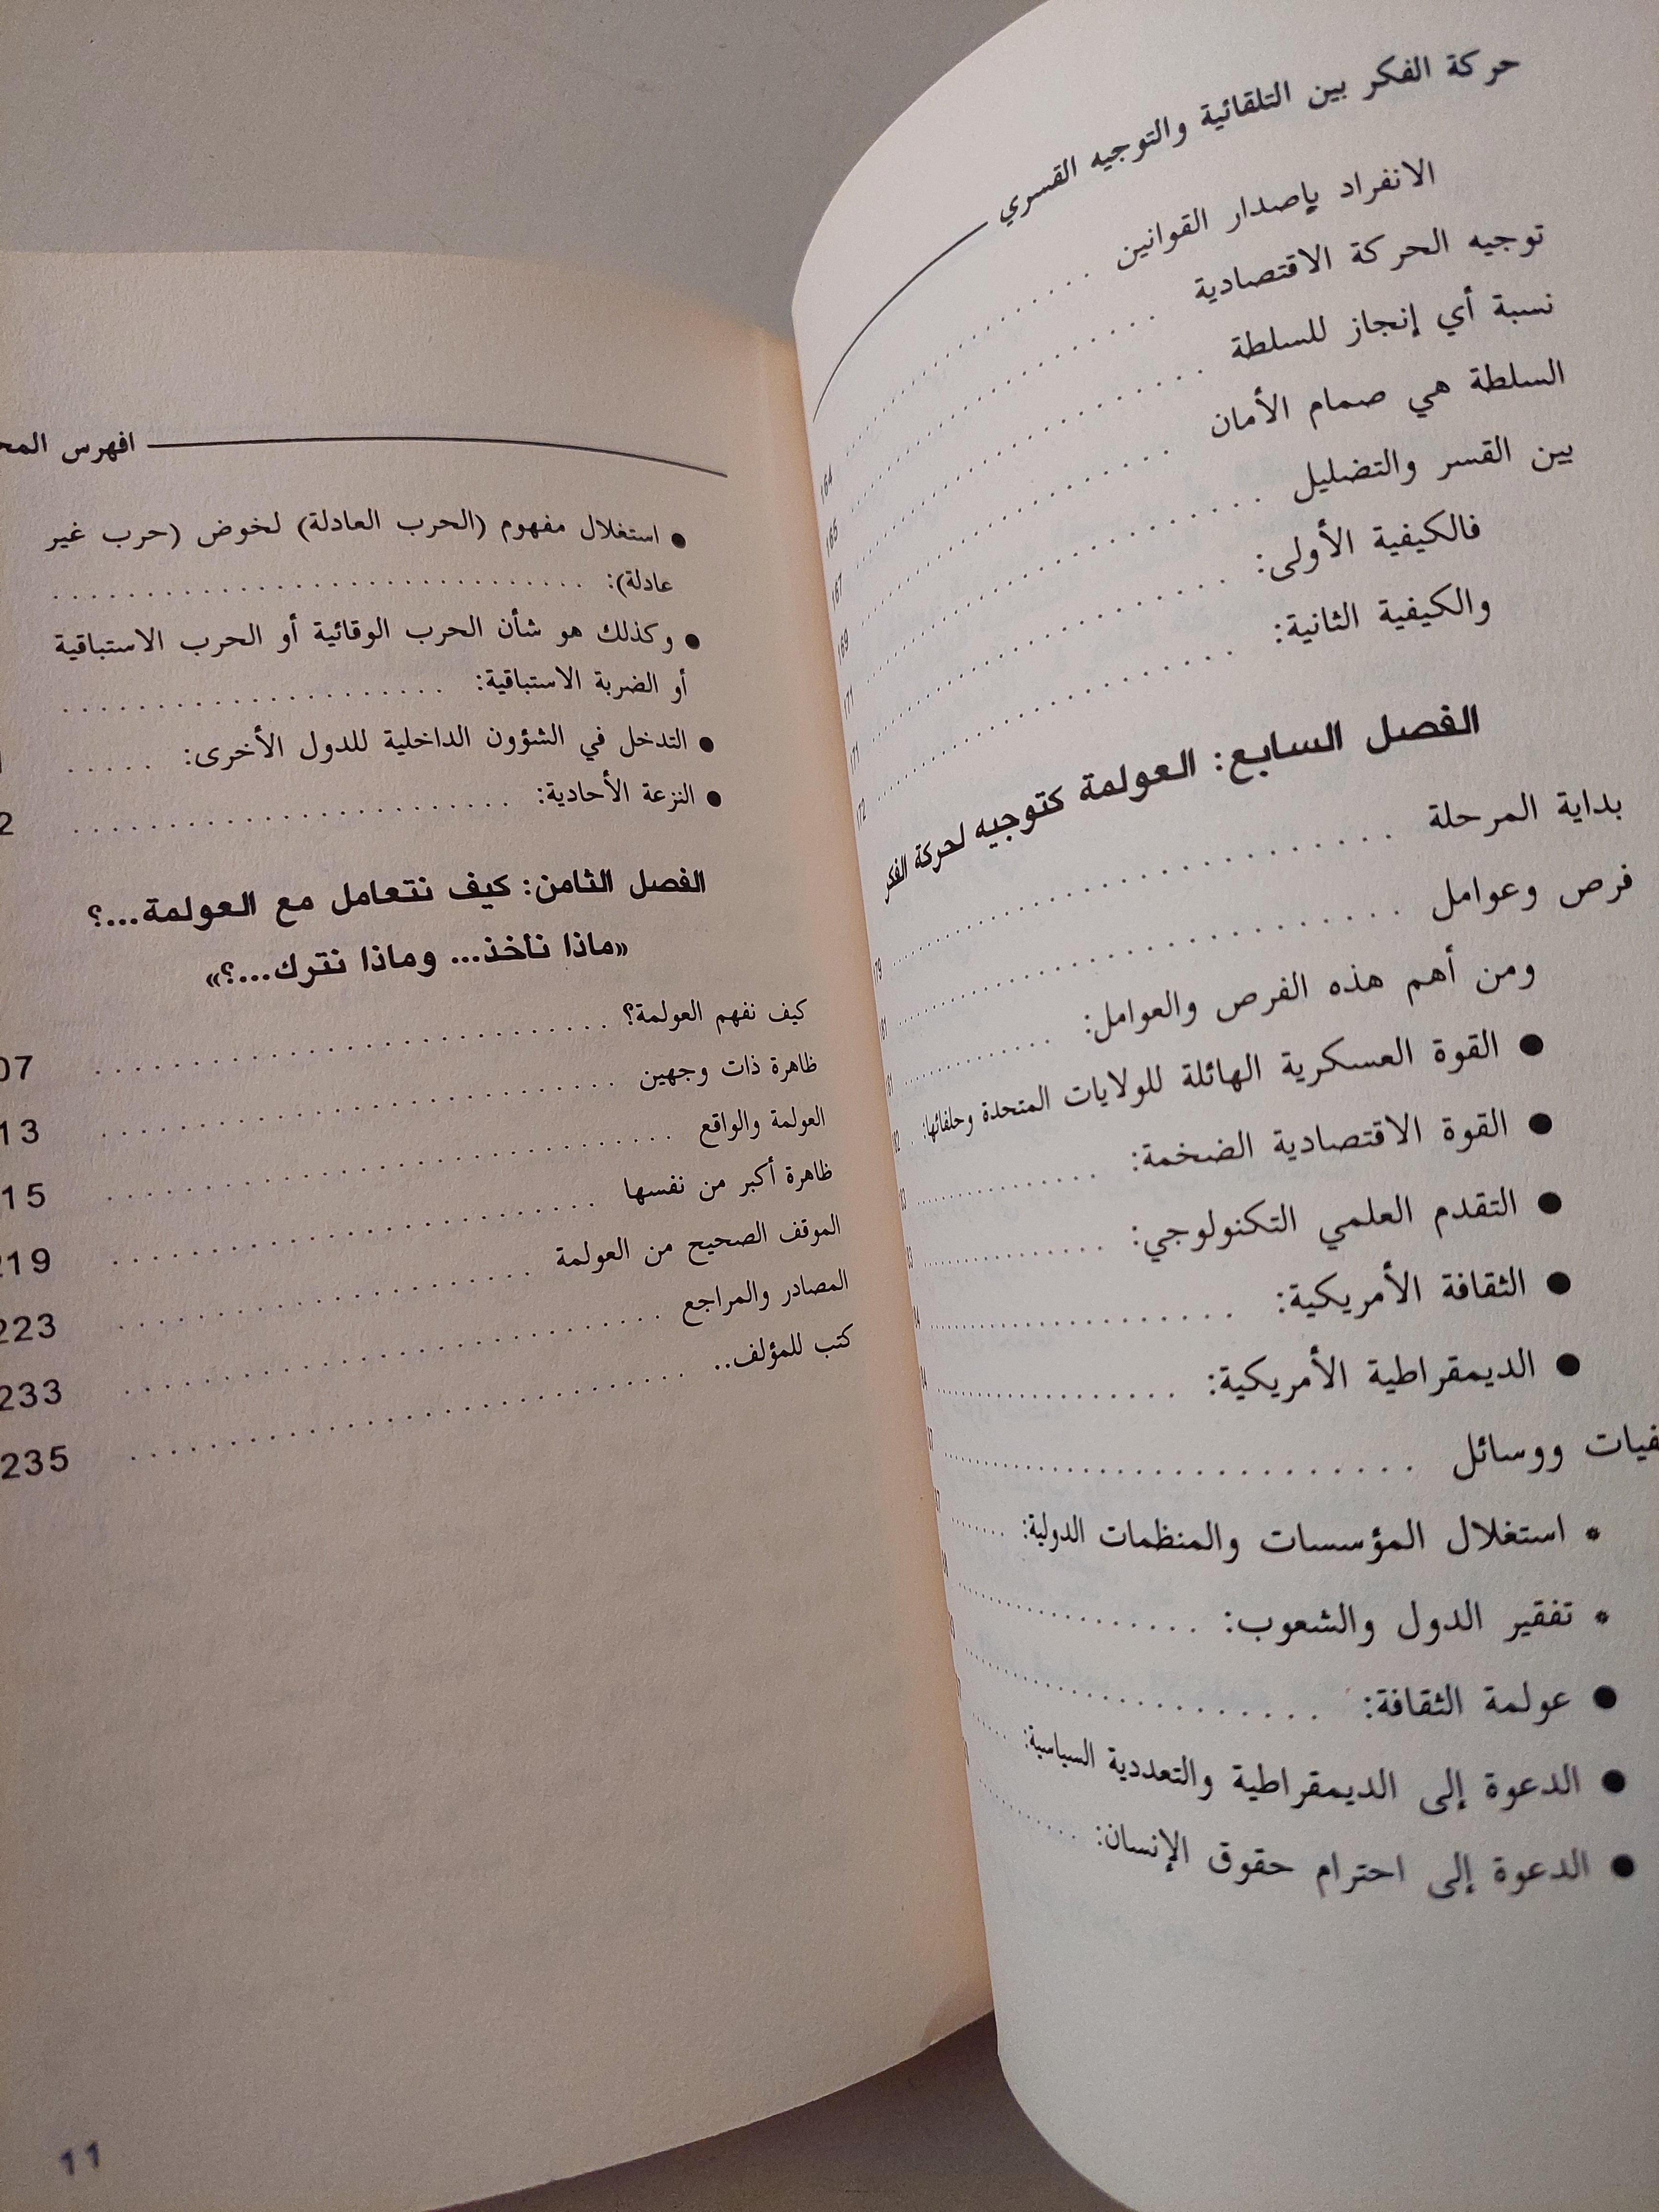 حركة الفكر بين التلقائية والتوجيه القسري
الانفراد بإصدار القوانين 164
توجيه الحركة الاقتصادية 165
نسبة أي إنجاز للسلطة 167
السلطة هي صمام الأمان 169
بين القسر والتضليل 171
فالكيفية الأولى: 171
والكيفية الثانية: 172
الفصل السابع: العولمة كتوجيه لحركة الفكر
بداية المرحلة 179
فرص وعوامل
ومن أهم هذه الفرص والعوامل:
● القوة العسكرية الهائلة للولايات المتحدة وحلفائها:
● القوة الاقتصادية الضخمة:
● التقدم العلمي التكنولوجي:
● الثقافة الأمريكية:
● الديمقراطية الأمريكية:
ووسائل
* استغلال المؤسسات والمنظمات الدولية:
* تفقير الدول والشعوب:
● عولمة الثقافة:
● الدعوة إلى الديمقراطية والتعددية السياسية:
● الدعوة إلى احترام حقوق الإنسان:
افهرس
● استغلال مفهوم (الحرب العادلة) لخوض (حرب غير
عادلة):
● وكذلك هو شأن الحرب الوقائية أو الحرب الاستباقية
أو الضربة الاستباقية:
● التدخل في الشؤون الداخلية للدول الأخرى:
● النزعة الأحادية:
الفصل الثامن: كيف نتعامل مع العولمة...؟
«ماذا نأخذ... وماذا نترك...؟»
كيف نفهم العولمة؟ 07
ظاهرة ذات وجهين 13
العولمة والواقع 15
ظاهرة أكبر من نفسها 219
الموقف الصحيح من العولمة 223
المصادر والمراجع 233
كتب للمؤلف.. 235
11